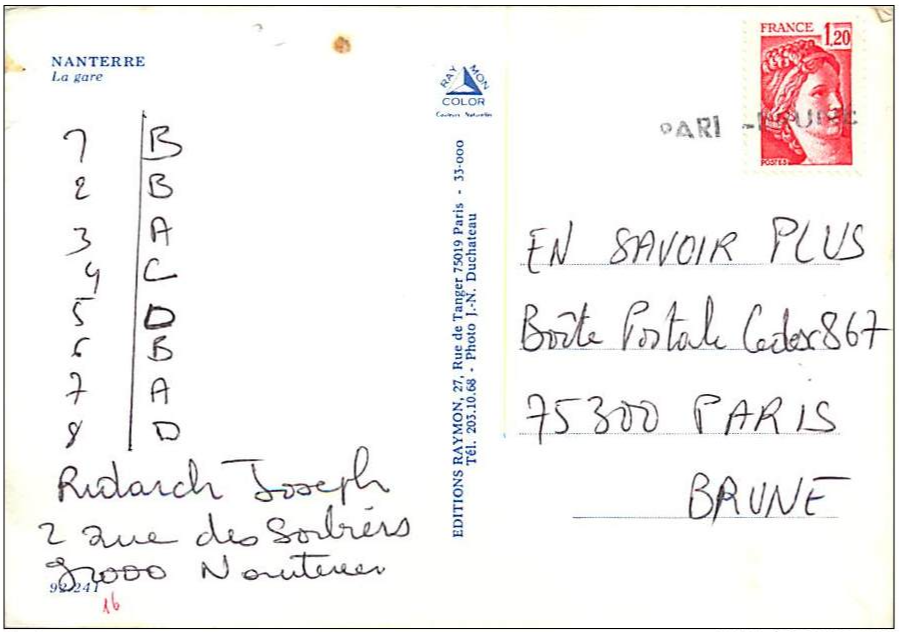 NANTERRE
La gare
1 B
2 B
3 A
4 C
5 D
6 B
7 A
8 D
Joseph
2 rue des Sorbiers
92000 Nanterre
92.241
16
RAYMON
COLOR
Couleurs Naturelles
EDITIONS RAYMON, 27, Rue de Tanger 75019 Paris - 33-000
Tél. 203.10.68 - Photo J.-N. Duchateau
FRANCE 1,20
POSTES
PARI -BRUNE
EN SAVOIR PLUS
Boîte Postale Cedex 867
75300 PARIS
BRUNE